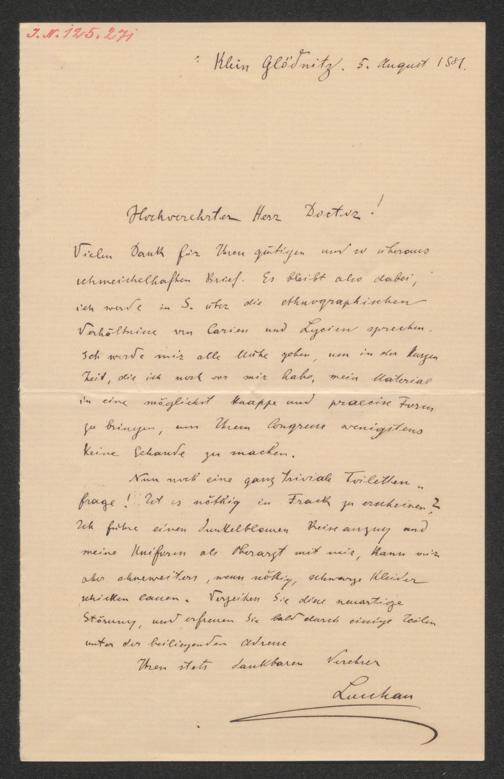 J.N. 125.271
Klein Glödnitz. 5. August 1881.
Hochverehrter Herr Doctor!
Vielen Dank für Ihren gütigen und so überaus
schmeichelhaften Brief. Es bleibt also dabei,
ich werde in S. über die ethnographischen
Verhältnisse von Carien und Lycien sprechen.
Ich werde mir alle Mühe geben, um in der kurzen
Zeit, die ich noch vor mir habe, mein Material
in eine möglichst knappe und praecise Form
zu bringen, um Ihrem Congresse wenigstens
keine Schande zu machen.
Nun noch eine ganz triviale Toiletten-
frage! Ist es nöthig in Frack zu erscheinen?
Ich führe einen dunkelblauen Reiseanzug und
meine Uniform als Oberarzt mit mir, kann mir
aber ohneweiters, wenn nöthig, schwarze Kleider
schicken lassen. Verzeihen Sie diese neuartige
Störung, und erfreuen Sie bald durch einige Zeilen
unter der beiliegenden Adresse
Ihren stets dankbaren Verehrer
Luschan